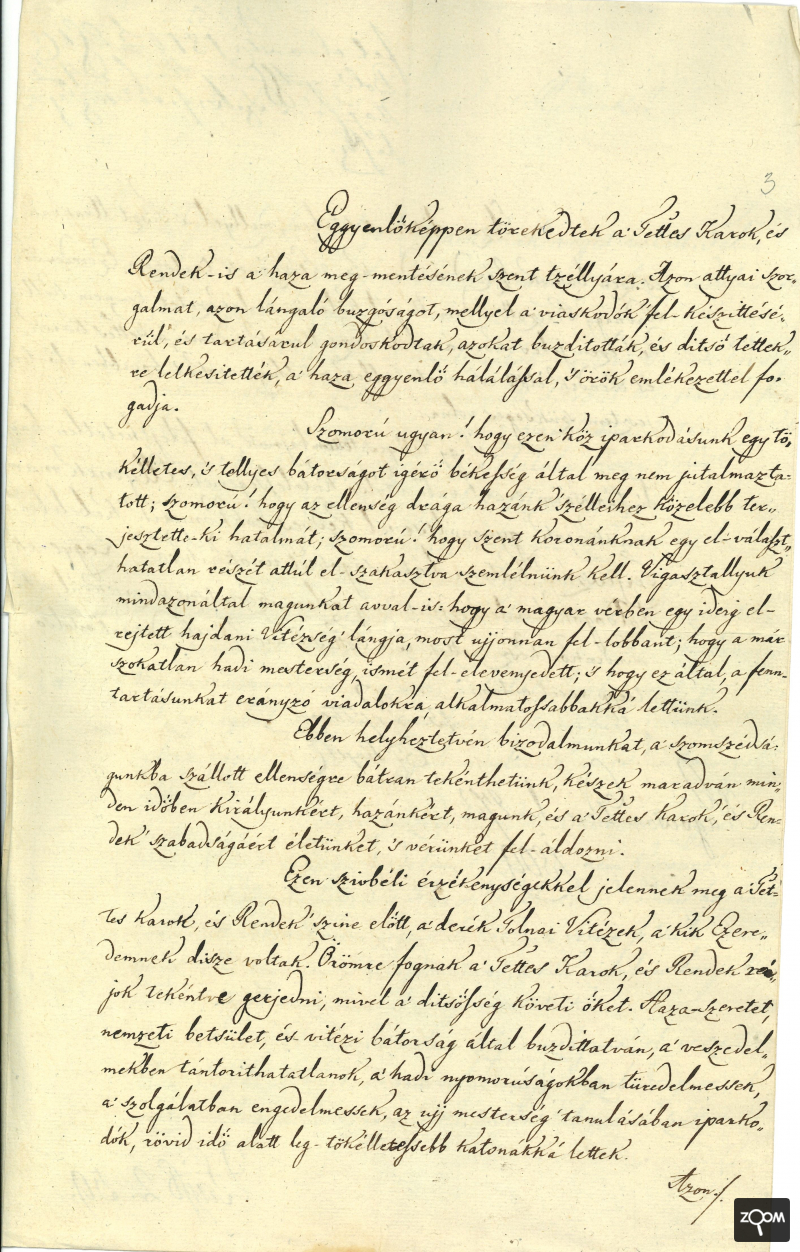 3
Eggyenlőképpen törekedtek a' Tettes Karok, és
Rendek-is a' haza meg-mentésének szent tzéllyára. Azon attyai szor-
galmat, azon lángaló buzgóságot, mellyel a' viaskodók' fel-készittésé-
rül, és tartásárul gondoskodtak, azokat buzditották, és ditső tettek-
re lelkesitették, a' haza eggyenlő hálálással, 's örök emlékezettel fo-
gadja.
Szomorú ugyan! hogy ezen köz iparkodásunk egy tö-
kélletes, 's tellyes bátorságot igérő békesség által meg nem jutalmazta-
tott; szomorú! hogy az ellenség drága hazánk' szélleihez közelebb ter-
jesztette-ki hatalmát; szomorú! hogy szent koronánknak egy el-választ-
hatatlan részét attúl el-szakasztva szemlélnünk kell. Vigasztallyuk
mindazonáltal magunkat avval-is: hogy a' magyar vérben egy ideig el-
rejtett hajdani Vitézség' lángja, most ujjonnan fel-lobbant; hogy a már
szokatlan hadi mesterség, ismét fel-elevenyedett; 's hogy ez által, a fenn-
tartásunkat erányzó viadalokra, alkalmatossabbakká lettünk.
Ebben helyheztetvén bizodalmunkat, a' szomszédsá-
gunkba szállott ellenségre bátran tekénthetünk, készek maradván min-
den időben Királyunkért, hazánkért, magunk, és a' Tettes Karok, és Ren-
dek' szabadságáért életünket, 's vérünket fel-áldozni.
Ezen szivbéli érzékenységekkel jelennek meg a' Tet-
tes Karok, és Rendek' szine előtt, a' derék Tolnai Vitézek, a' kik Ezere-
demnek disze voltak. Örömre fognak a' Tettes Karok, és Rendek reá-
jok tekéntve gerjedni, mivel a' ditsősség követi őket. Haza-szeretet,
nemzeti betsület, és vitézi bátorság által buzdittatván, a' veszedel-
mekben tántorithatatlanok, a' hadi nyomorúságokban türedelmessek,
a' szolgálatban engedelmessek, az ujj mesterség' tanulásában iparko-
dók, rövid idő alatt leg-tökélletessebb katonákká lettek.
Azon
ZOOM